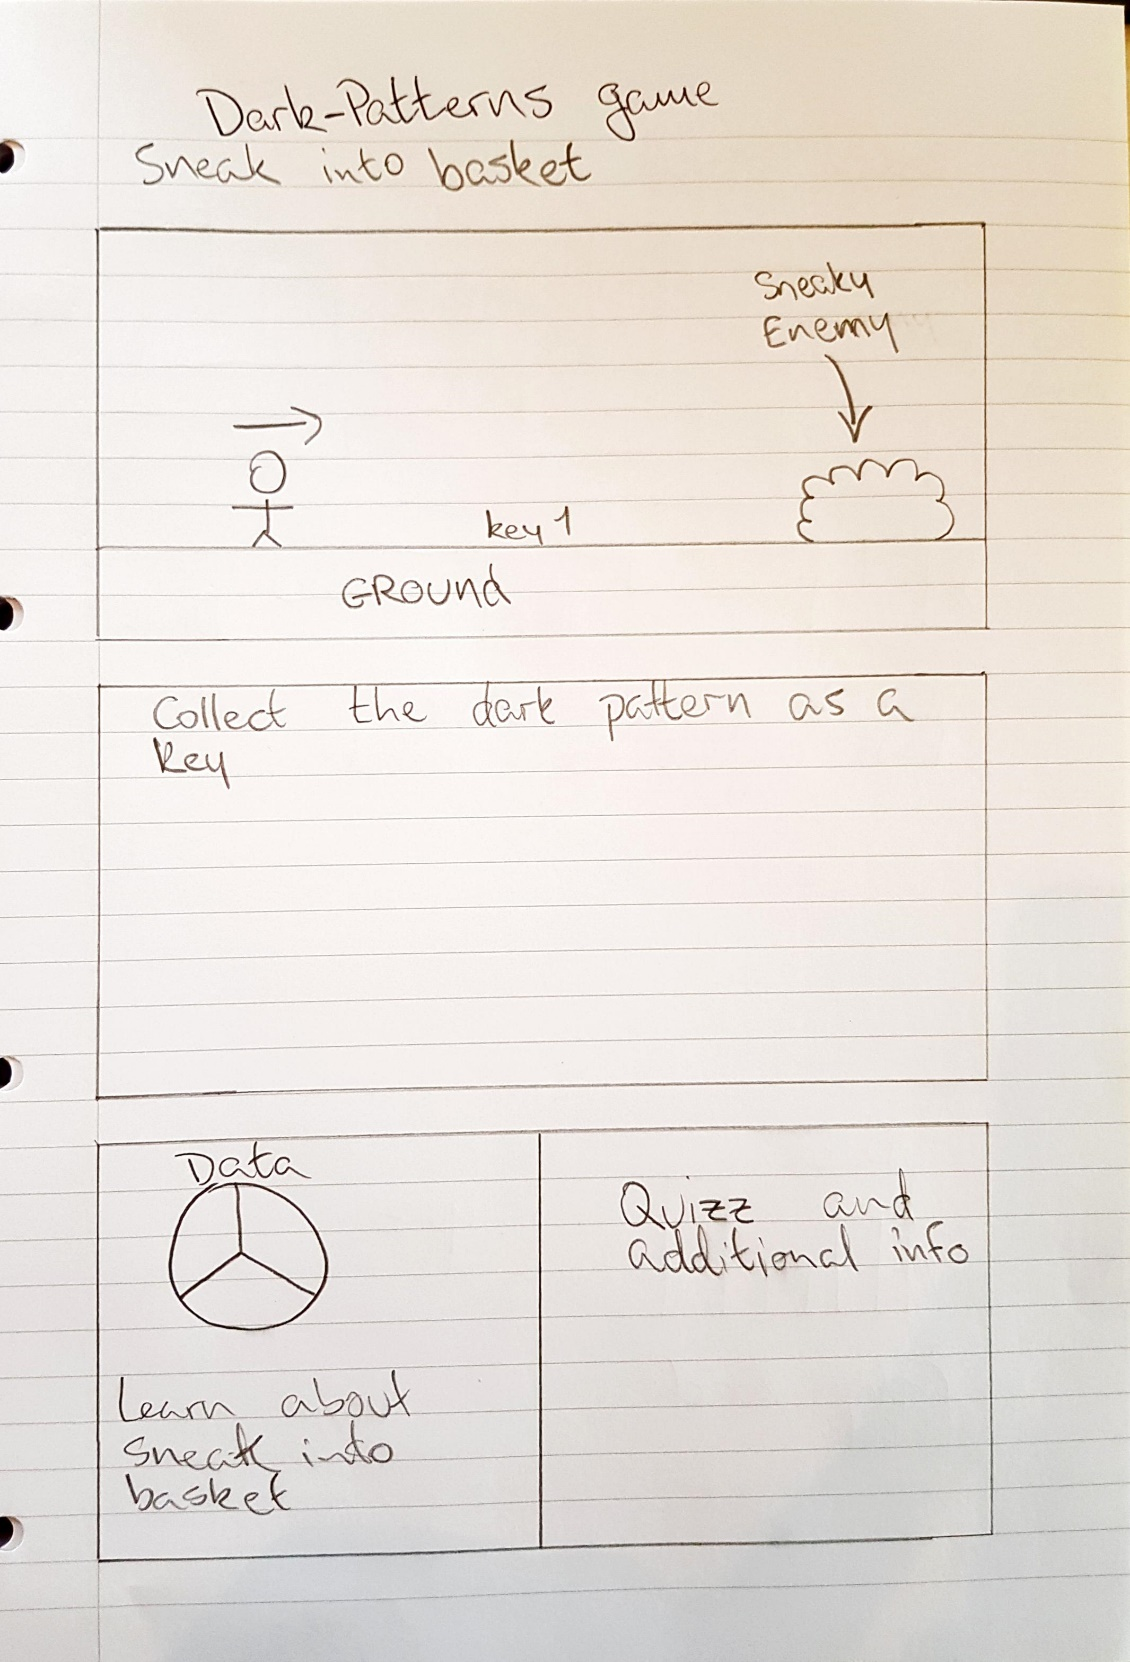 Dark-Patterns game
Sneak into basket
Sneaky
Enemy
key 1
GROUnd
Collect the dark pattern as a
key
Data
Learn about
sneak into
basket
Quizz and
additional info